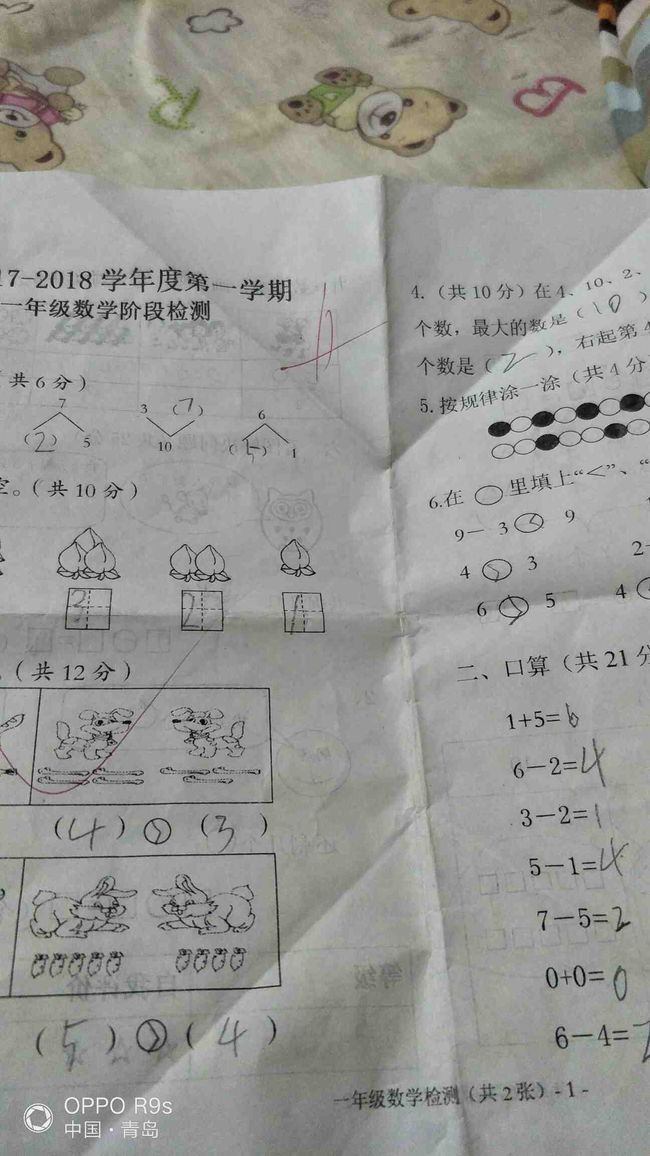 17-2018学年度第一学期
一年级数学阶段检测
共6分)
7
(2) 5
3 (7)
10
6
(5) 1
空。(共10分)
3 2 1
。(共12分)
(4) > (3)
(5) > (4)
4.(共10分)在4、10、2、
个数,最大的数是(10)
个数是(2),右起第4
5.按规律涂一涂(共4分
6.在○里填上“<”、“
9-3 < 9
4 > 3
2-
6 > 5
4
二、口算(共21分
1+5=6
6-2=4
3-2=1
5-1=4
7-5=2
0+0=0
6-4=2
一年级数学检测(共2张)-1-
OPPO R9s
中国·青岛